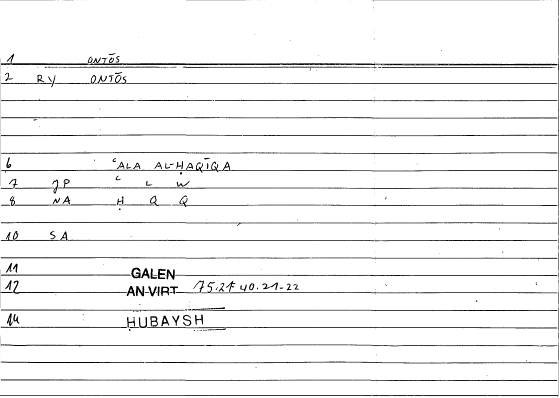 1 ONTŌS
2 RY ONTŌS
6 ʿALA AL-ḤAQĪQA
7 JP ʿ L W
8 NA Ḥ Q Q
10 SA
11 GALEN
12 AN.VIRT 75.21 40.21-22
14 ḤUBAYSH